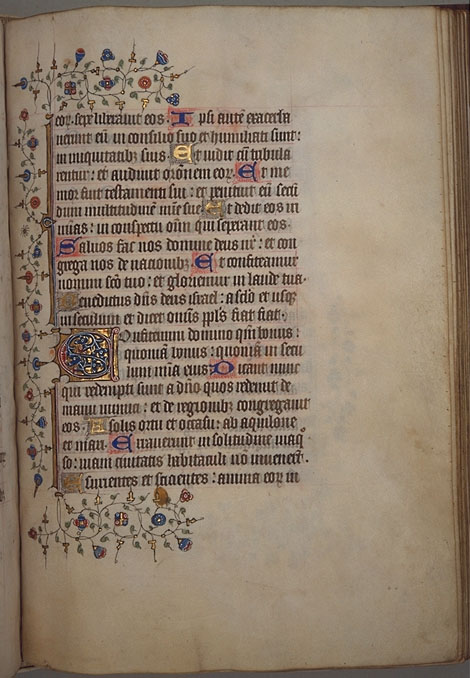 eoꝝ. sepe liberauit eos. Ipsi autē exacerba
uerunt eū in consilio suo et humiliati sunt:
in iniquitatibꝫ suis. Et uidit cū tribula
rentur: et audiuit orōnem eoꝝ. Et me
mor fuit testamenti sui: et penituit eū secū
dum multitudinē mīe sue. Et dedit eos in
mīas: in conspectu oīm qui ceperant eos.
Saluos fac nos domine deus nr̄: et con
grega nos de nacionibꝫ. Et confiteamur
nomini scō tuo: et gloriemur in laude tua.
Benedictus dn̄s deus israel: a sclō et usqꝫ
in seculum et dicet omīs ppl̄s fiat fiat.
Confitemini domino qm̄ bonus:
quoniā bonus: quoniā in secu
lum mīa eius. Dicant nunc
qui redempti sunt a dn̄o quos redemit de
manu inimici: et de regionibꝫ congregauit
eos. A solis ortu et occasu: ab aquilone
et mari. Errauerunt in solitudine inaq̄
so: uiam ciuitatis habitaculi nō inuenerūt.
Esurientes et sicientes: anima eoꝝ in